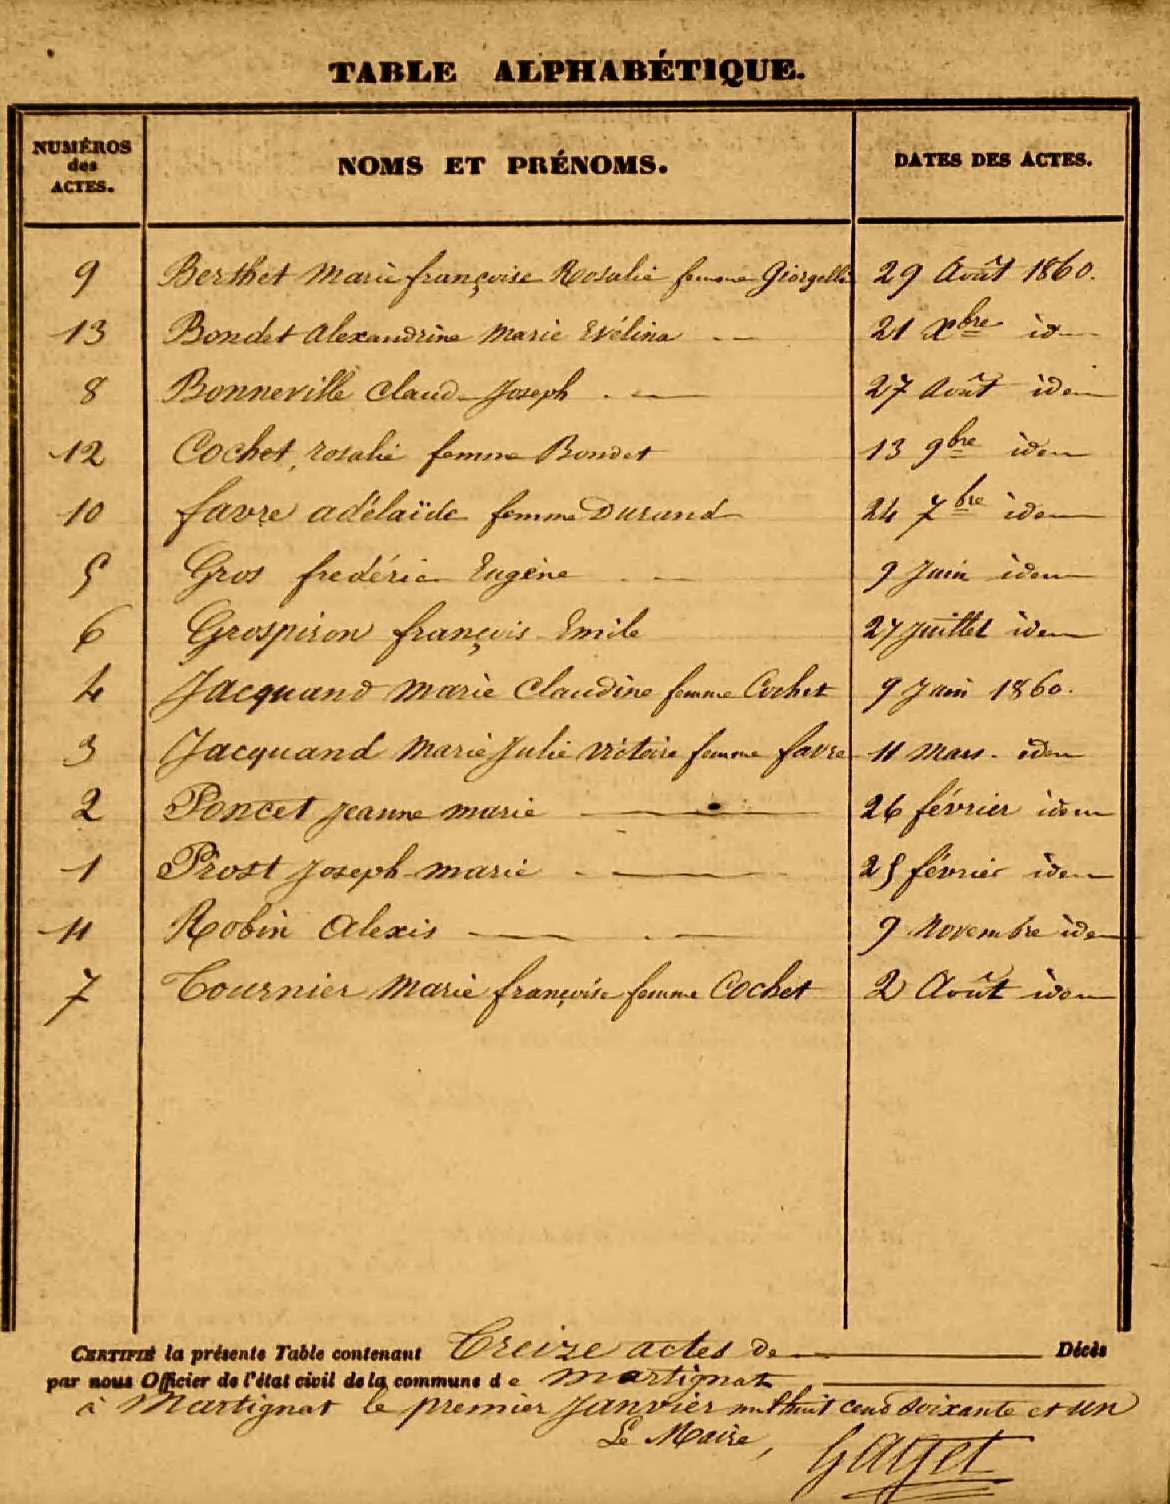 TABLE ALPHABÉTIQUE.
NUMÉROS
des
ACTES.
NOMS ET PRÉNOMS.
DATES DES ACTES.
9 Berthet Marie françoise Rosalie femme 29 Août 1860.
13 Bondet Alexandrine Marie Evélina 21 Xbre idem
8 Bonneville Claud Joseph 27 Août idem
12 Cochet, rosalie femme Bondet 13 9bre idem
10 favre adélaïde femme Durand 24 7bre idem
5 Gros frédéric Eugène 9 Juin idem
6 Grospiron françois Emile 27 Juillet idem
4 Jacquand Marie Claudine femme Cochet 9 Juin 1860.
3 Jacquand Marie Julie Victoire femme favre 11 Mars. idem
2 Poncet Jeanne Marie 26 février idem
1 Prost Joseph Marie 25 février idem
11 Robin Alexis 9 Novembre idem
7 Tournier Marie françoise femme Cochet 2 Août idem
CERTIFIÉ la présente Table contenant Treize actes de Décès
par nous Officier de l'état civil de la commune de Martignat
à Martignat le premier Janvier mil huit cent soixante et un
Le Maire,